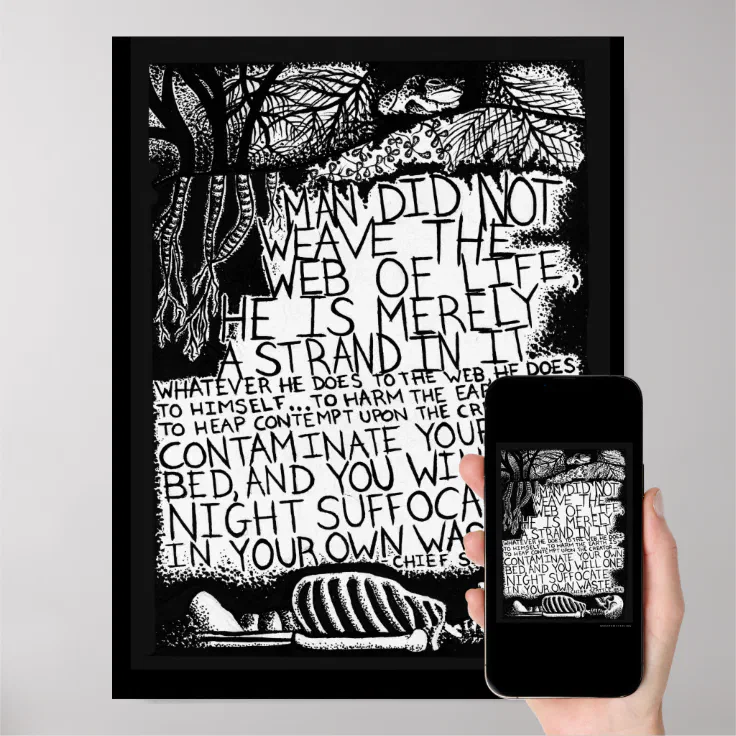 MAN DID NOT
WEAVE THE
WEB OF LIFE,
HE IS MERELY
A STRAND IN IT
WHATEVER HE DOES TO THE WEB, HE DOES
TO HIMSELF... TO HARM THE
TO HEAP CONTEMPT UPON THE
CONTAMINATE YOUR
BED, AND YOU
NIGHT
IN YOUR OWN
CHIEF
MAN DID NOT
WEAVE THE
WEB OF LIFE
HE IS MERELY
A STRAND IN IT
WHATEVER HE DOES TO THE WEB, HE DOES
TO HIMSELF... TO HARM THE EARTH IS
TO HEAP CONTEMPT UPON THE CREATOR
CONTAMINATE YOUR OWN
BED, AND YOU WILL ONE
NIGHT SUFFOCATE
IN YOUR OWN WASTE